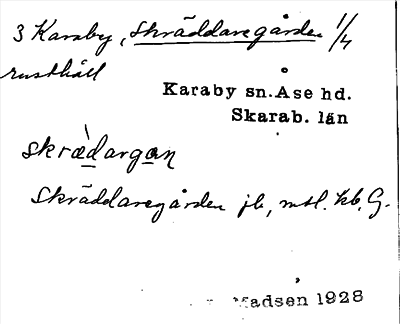 3 Karaby, Skräddaregården 1/4
rusthåll
Karaby sn. Åse hd.
Skarab. län
skræ̀dargan
Skräddaregården jb, mtl. kb, G.
Madsen 1928